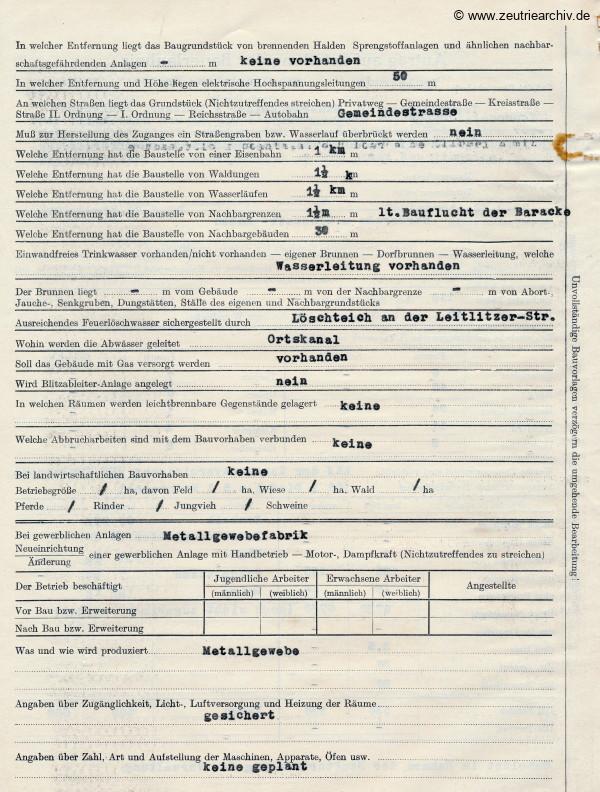 © www.zeutriearchiv.de
In welcher Entfernung liegt das Baugrundstück von brennenden Halden Sprengstoffanlagen und ähnlichen nachbar-
schaftsgefährdenden Anlagen - m keine vorhanden
In welcher Entfernung und Höhe liegen elektrische Hochspannungsleitungen 50 m
An welchen Straßen liegt das Grundstück (Nichtzutreffendes streichen) Privatweg — Gemeindestraße — Kreisstraße —
Straße II. Ordnung — I. Ordnung — Reichsstraße — Autobahn Gemeindestrasse
Muß zur Herstellung des Zuganges ein Straßengraben bzw. Wasserlauf überbrückt werden nein
Welche Entfernung hat die Baustelle von einer Eisenbahn 1 km m
Welche Entfernung hat die Baustelle von Waldungen 1½ km
Welche Entfernung hat die Baustelle von Wasserläufen 1½ km m
Welche Entfernung hat die Baustelle von Nachbargrenzen 1½m m lt.Bauflucht der Baracke
Welche Entfernung hat die Baustelle von Nachbargebäuden 30 m
Einwandfreies Trinkwasser vorhanden/nicht vorhanden — eigener Brunnen — Dorfbrunnen — Wasserleitung, welche
Wasserleitung vorhanden
Der Brunnen liegt - m vom Gebäude - m von der Nachbargrenze - m von Abort-,
Jauche-, Senkgruben, Dungstätten, Ställe des eigenen und Nachbargrundstücks
Ausreichendes Feuerlöschwasser sichergestellt durch Löschteich an der Leitlitzer-Str.
Wohin werden die Abwässer geleitet Ortskanal
Soll das Gebäude mit Gas versorgt werden vorhanden
Wird Blitzableiter-Anlage angelegt nein
In welchen Räumen werden leichtbrennbare Gegenstände gelagert keine
Welche Abbrucharbeiten sind mit dem Bauvorhaben verbunden keine
Bei landwirtschaftlichen Bauvorhaben keine
Betriebsgröße / ha, davon Feld / ha, Wiese / ha, Wald / ha
Pferde / Rinder / Jungvieh / Schweine
Bei gewerblichen Anlagen Metallgewebefabrik
Neueinrichtung
Änderung einer gewerblichen Anlage mit Handbetrieb — Motor-, Dampfkraft (Nichtzutreffendes zu streichen)
Der Betrieb beschäftigt Jugendliche Arbeiter Erwachsene Arbeiter Angestellte
(männlich) (weiblich) (männlich) (weiblich)
Vor Bau bzw. Erweiterung
Nach Bau bzw. Erweiterung
Was und wie wird produziert Metallgewebe
Angaben über Zugänglichkeit, Licht-, Luftversorgung und Heizung der Räume
gesichert
Angaben über Zahl, Art und Aufstellung der Maschinen, Apparate, Öfen usw.
keine geplant
Unvollständige Bauvorlagen verzögern die umgehende Bearbeitung!